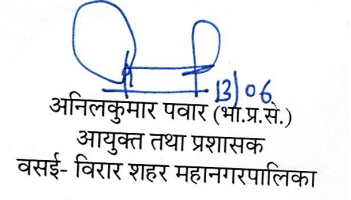 13/06
अनिलकुमार पवार (भा.प्र.से.)
आयुक्त तथा प्रशासक
वसई- विरार शहर महानगरपालिका